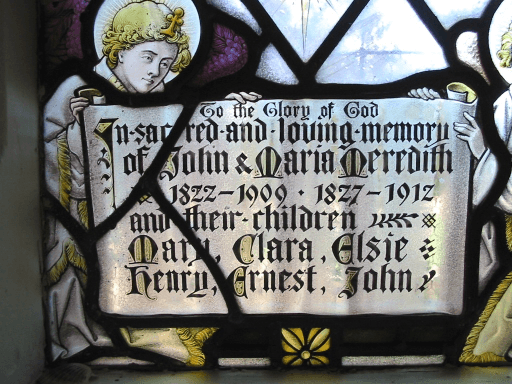 To the Glory of God
In·sacred·and·loving·memory
of John & Maria Meredith
1822–1909 · 1827–1912
and their·children
Mary, Clara, Elsie
Henry, Ernest, John